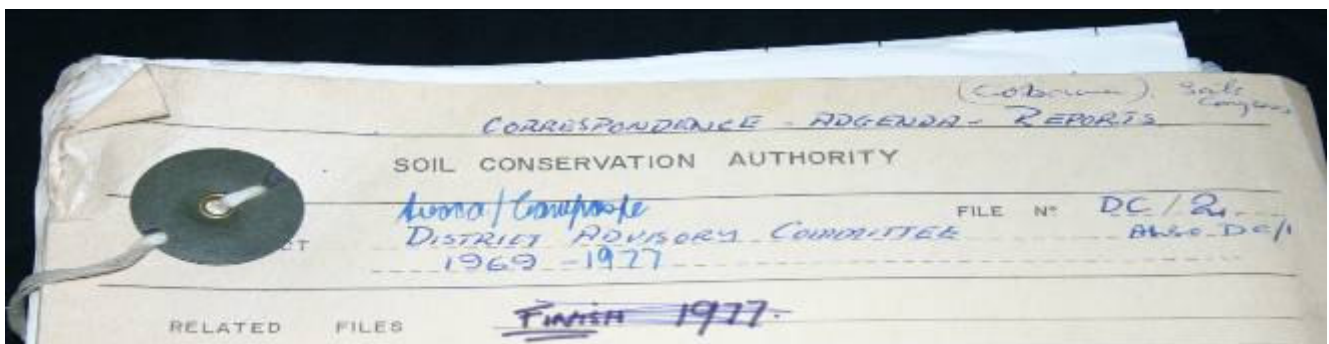 (Cobaw) Soil
CORRESPONDENCE - ADGENDA - REPORTS
SOIL CONSERVATION AUTHORITY
Avoca / Campaspe
FILE No DC/2
DISTRICT ADVISORY COMMITTEE ALSO DC/1
CT 1969 - 1977
RELATED FILES FINISH 1977.